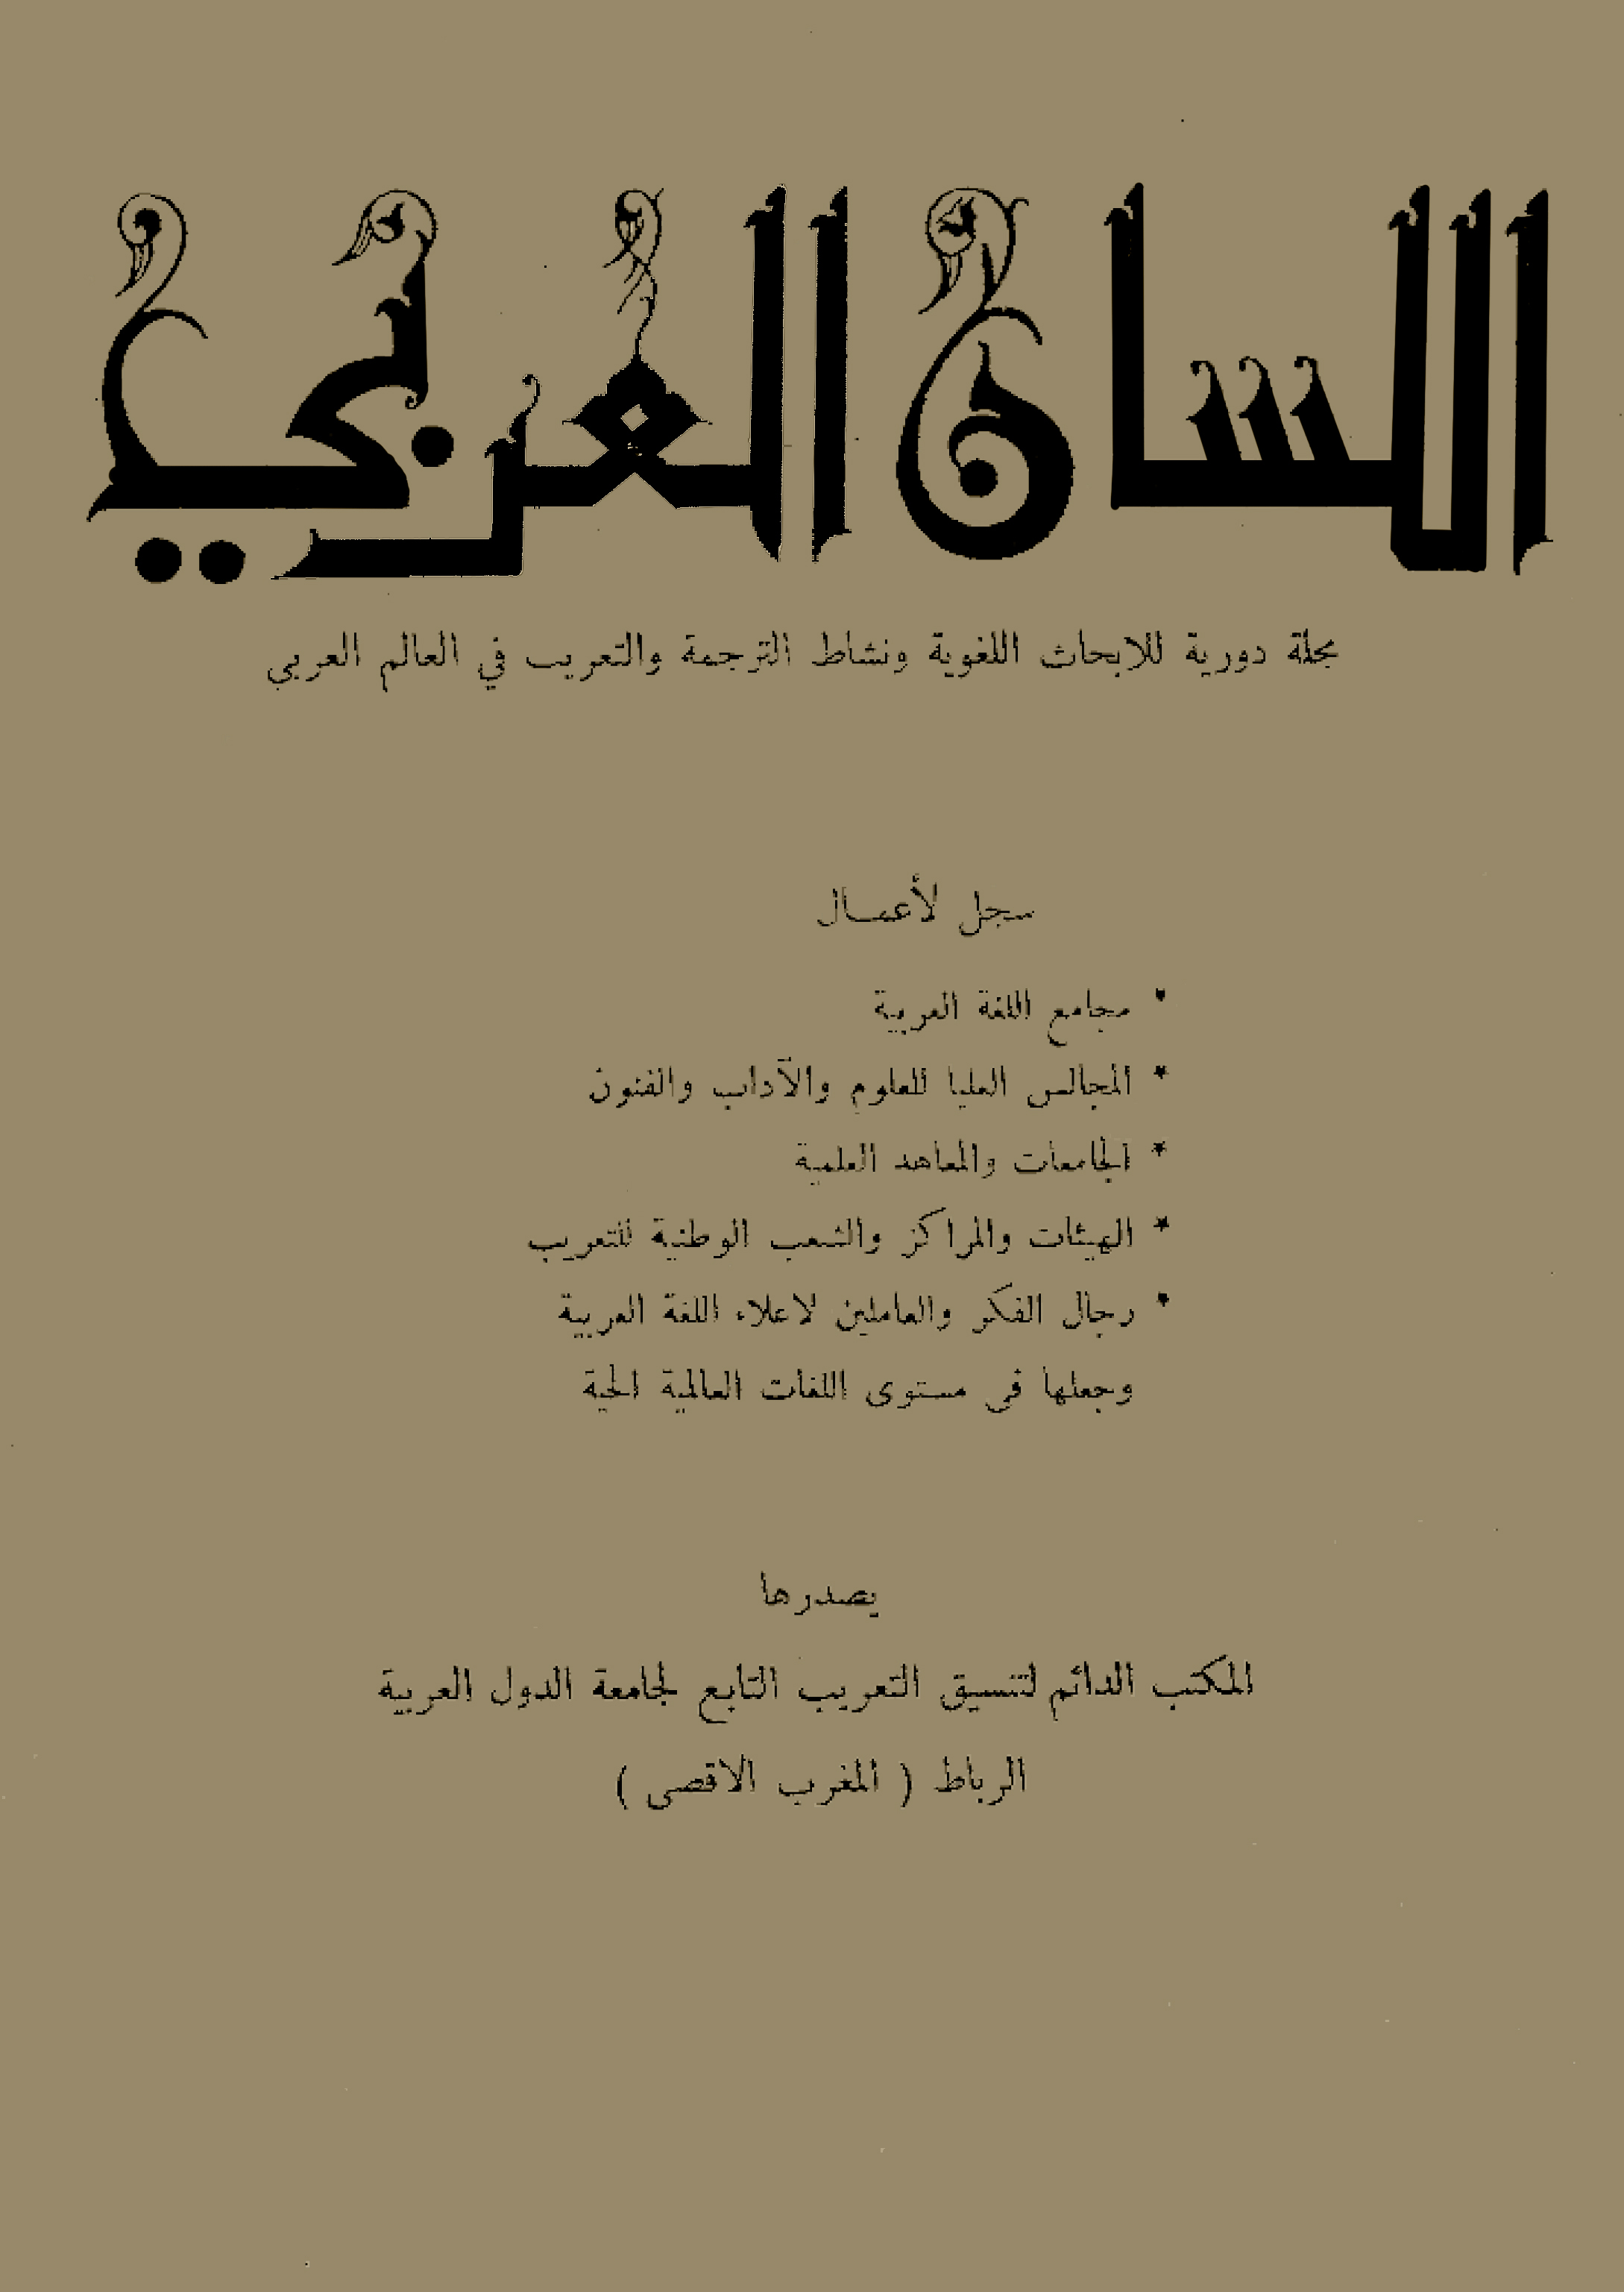 اللسان العربي
مجلة دورية للابحاث اللغوية ونشاط الترجمة والتعريب في العالم العربي
سجل لأعمال
* مجامع اللغة العربية
* المجالس العليا للعلوم والآداب والفنون
* الجامعات والمعاهد العلمية
* الهيئات والمراكز والشعب الوطنية للتعريب
* رجال الفكر والعاملين لاعلاء اللغة العربية
وجعلها في مستوى اللغات العالمية الحية
يصدرها
المكتب الدائم لتنسيق التعريب التابع لجامعة الدول العربية
الرباط ( المغرب الاقصى )